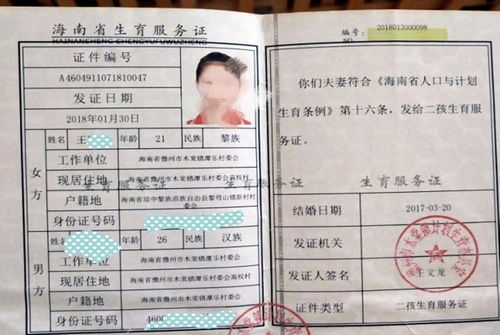 海南省生育服务证
HAINANSHENG SHENGYUFUWUZHENG
证件编号
A4604911071818047
发证日期
2018年01月30日
女方
姓名 王 年龄 21 民族 黎族
工作单位 海南省儋州市木棠镇潭乐村委会
现居住地 海南省儋州市木棠镇潭乐村委会高权村
户籍地 海南省琼中黎族苗族自治县黎母山镇新村村委会
身份证号码
男方
姓名 年龄 26 民族 汉族
工作单位 海南省儋州市木棠镇潭乐村委会
现居住地 海南省儋州市木棠镇潭乐村委会高权村
户籍地 海南省儋州市木棠镇潭乐村委会高权村
身份证号码 460
生育服务证 生育服务证 生育服务证
编号: 2018013000098
NO.
你们夫妻符合《海南省人口与计划
生育条例》第十六条，发给二孩生育服
务证。
结婚日期 2017-03-20
发证机关
发证人签名 王文龙
证件类型 二孩生育服务证